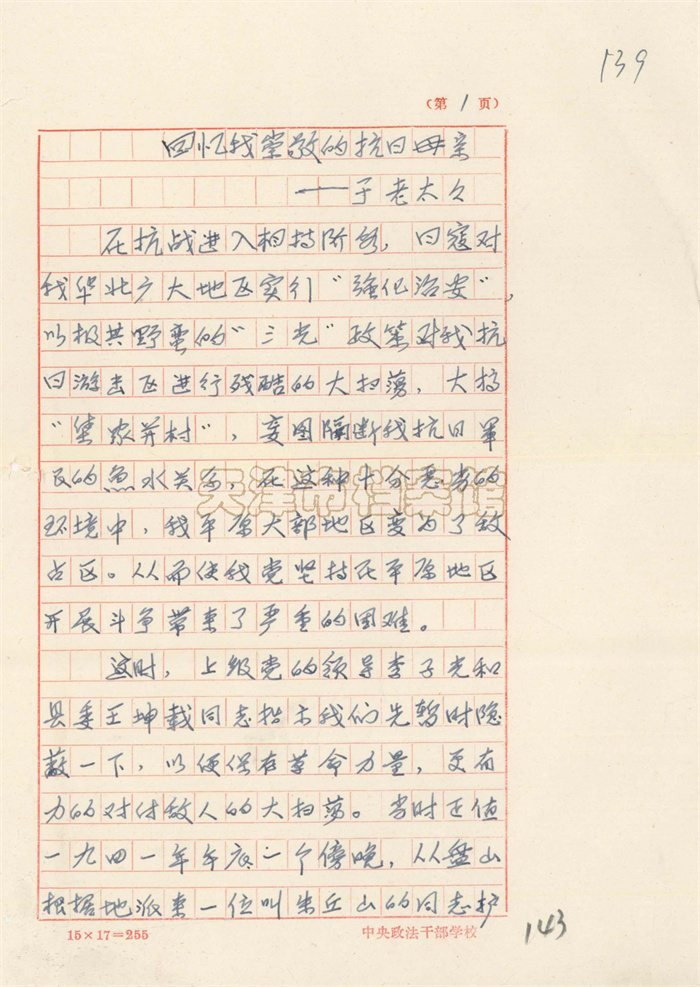 139
（第1页）
回忆我崇敬的抗日母亲
——于老太太
在抗战进入相持阶段，日寇对
我华北广大地区实行“强化治安”，
以极其野蛮的“三光”政策对我抗
日游击区进行残酷的大扫荡，大搞
“集家并村”，妄图隔断我抗日军
民的鱼水关系，在这种十分恶劣的
环境中，我平原大部地区变为了敌
占区。从而使我党坚持在平原地区
开展斗争带来了严重的困难。
这时，上级党的领导李子光和
县委王坤载同志指示我们先暂时隐
蔽一下，以便保存革命力量，更有
力的对付敌人的大扫荡。当时正值
一九四一年年底一个傍晚，从盘山
根据地派来一位叫朱丘山的同志护
15×17=255
中央政法干部学校
143
天津市档案馆